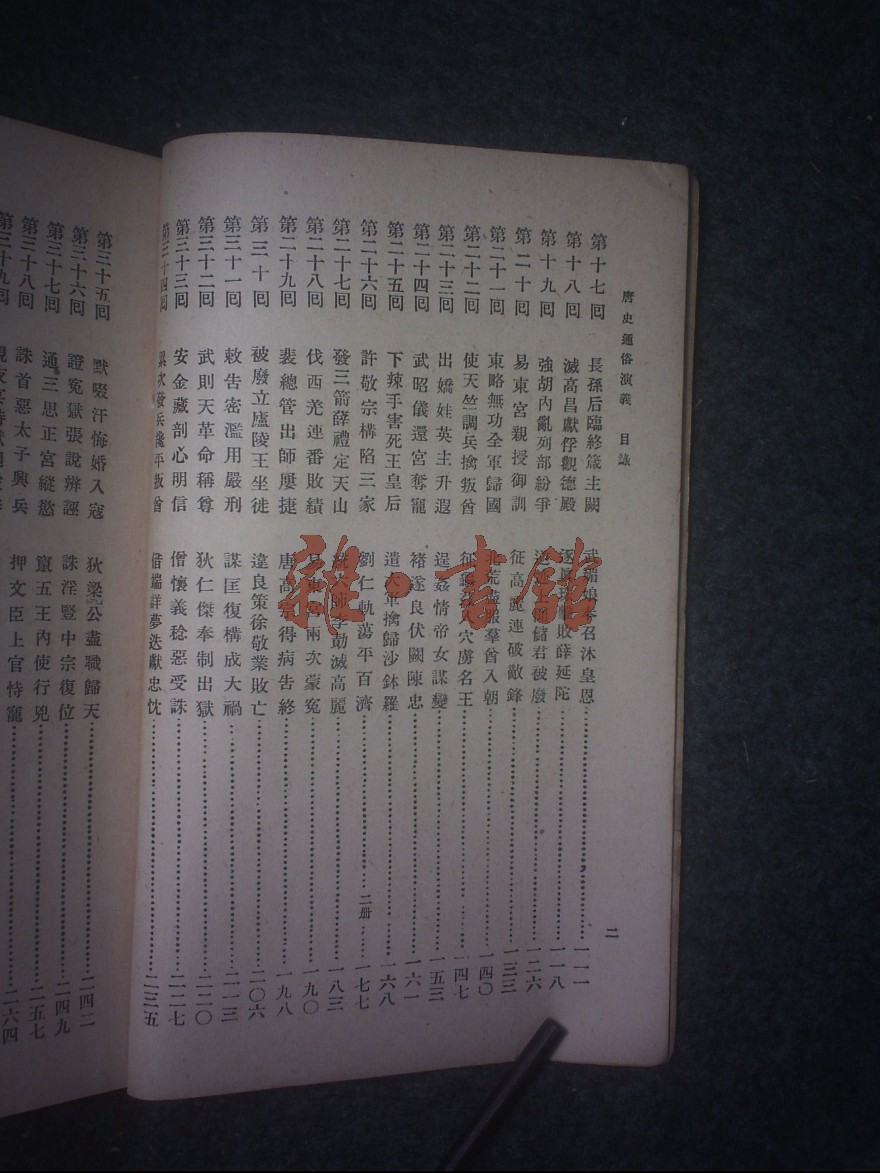 唐史通俗演義 目錄
二
第十七回 長孫后臨終箴主闕 武 召沐皇恩 一一一
第十八回 滅高昌獻俘觀德殿 敗薛延陀 一一八
第十九回 強胡內亂列部紛爭 儲君被廢 一二六
第二十回 易東宮親授御訓 征高麗連破敵鋒 一三三
第二十一回 東略無功全軍歸國 羣酋入朝 一四〇
第二十二回 使天竺調兵擒叛酋 征 穴虜名王 一四七
第二十三回 出嬌娃英主升遐 逞姦情帝女謀變 一五三
第二十四回 武昭儀還宮奪寵 褚遂良伏闕陳忠 一六一
第二十五回 下辣手害死王皇后 遣大軍擒歸沙鉢羅 一六八
第二十六回 許敬宗構陷三家 劉仁軌蕩平百濟 二册 一七七
第二十七回 發三箭薛禮定天山 統大師李勣滅高麗 一八三
第二十八回 伐西羌連番敗績 易東宮兩次蒙冤 一九〇
第二十九回 裴總管出師屢捷 唐高宗得病告終 一九八
第三十回 被廢立廬陵王坐徙 違良策徐敬業敗亡 二〇六
第三十一回 敕告密濫用嚴刑 謀匡復構成大禍 二一三
第三十二回 武則天革命稱尊 狄仁傑奉制出獄 二二〇
第三十三回 安金藏剖心明信 僧懷義稔惡受誅 二二七
第三十四回 累次發兵纔平叛酋 借端詳夢迭獻忠忱 二三五
第三十五回 默啜汗悔婚入寇 狄梁公盡職歸天 二四二
第三十六回 證冤獄張說辨誣 誅淫豎中宗復位 二四九
第三十七回 通三思正宮縱慾 竄五王內使行兇 二五七
第三十八回 誅首惡太子興兵 押文臣上官恃寵 二六四
第三十九回
雜·書館